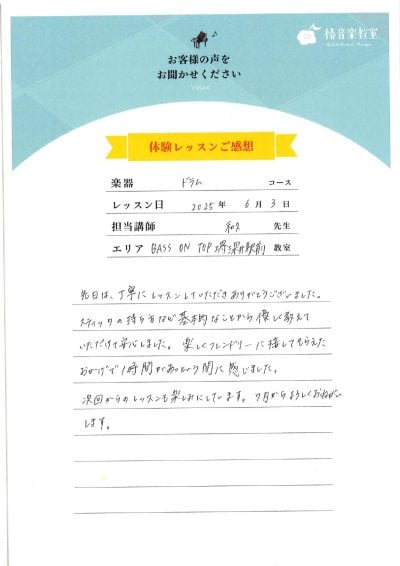 椿音楽教室
お客様の声を
お聞かせください
Voice
体験レッスンご感想
楽器 ドラム コース
レッスン日 2025年 6月3日
担当講師 先生
エリア BASS ON TOP 堺深井駅前 教室
先日は、丁寧にレッスンしていただきありがとうございました。
スティックの持ち方など基本的なことから優しく教えて
いただけて安心しました。楽しくフレンドリーに接してもらえた
おかげで1時間があっという間に感じました。
次回からのレッスンも楽しみにしています。7月からよろしくおねがい
します。